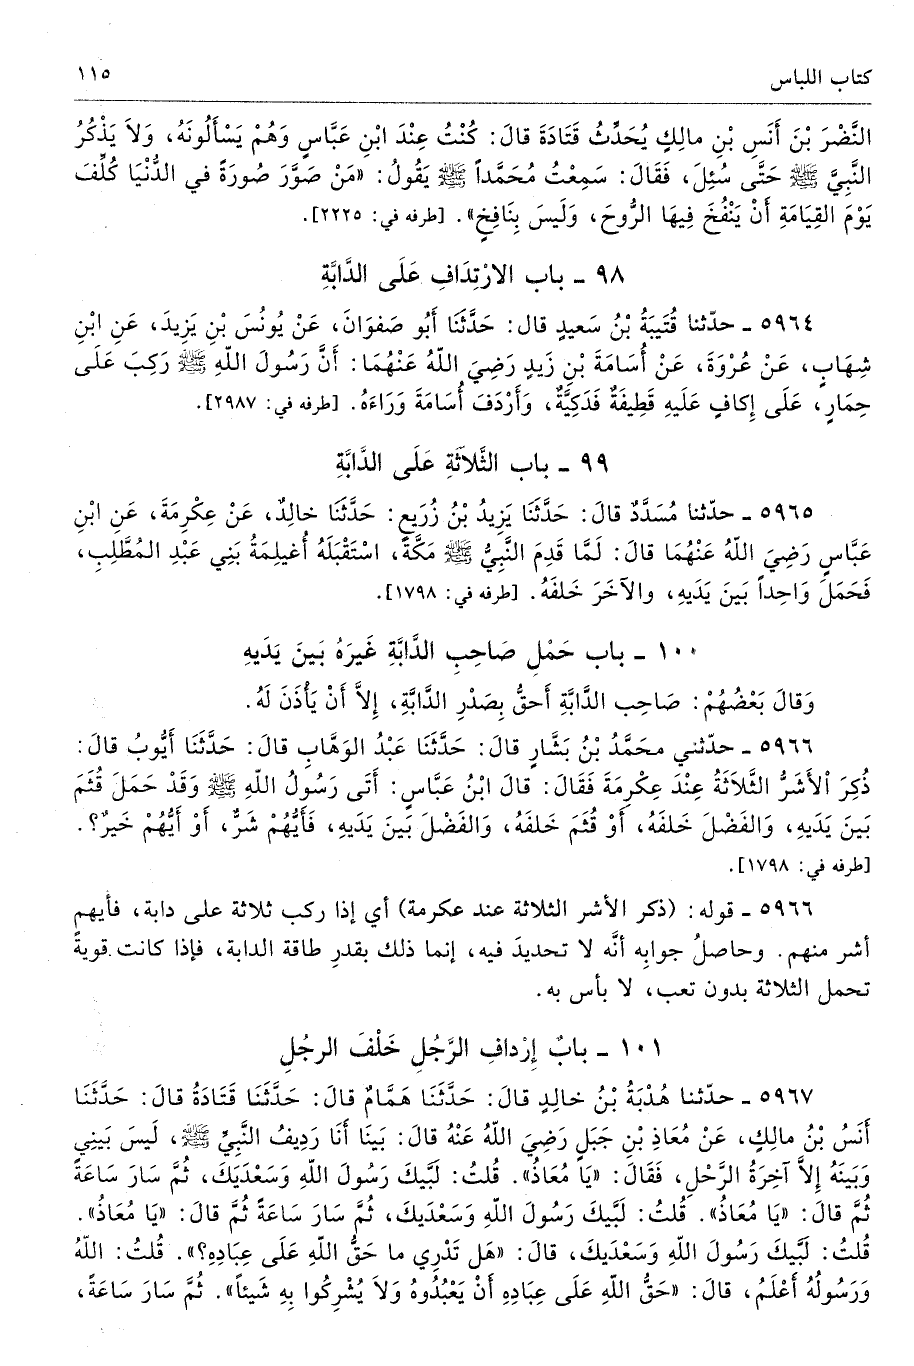 كتاب اللباس ١١٥
النَّضْرَ بْنَ أَنَسِ بْنِ مالِكٍ يُحَدِّثُ قَتَادَةَ قالَ: كُنْتُ عِنْدَ ابْنِ عَبَّاسٍ وَهُمْ يَسْأَلُونَهُ، وَلاَ يَذْكُرُ
النَّبِيَّ ﷺ حَتَّى سُئِلَ، فَقَالَ: سَمِعْتُ مُحَمَّداً ﷺ يَقُولُ: «مَنْ صَوَّرَ صُورَةً في الدُّنْيَا كُلِّفَ
يَوْمَ القِيَامَةِ أَنْ يَنْفُخَ فِيهَا الرُّوحَ، وَلَيسَ بِنَافِخٍ». [طرفه في: ٢٢٢٥].
٩٨ ـ باب الارْتِدَافِ عَلَى الدَّابَّةِ
٥٩٦٤ ـ حدّثنا قُتَيبَةُ بْنُ سَعيدٍ قال: حَدَّثَنَا أَبُو صَفوَانَ، عَنْ يُونُسَ بْنِ يَزِيدَ، عَنِ ابْنِ
شِهَابٍ، عَنْ عُرْوَةَ، عَنْ أُسَامَةَ بْنِ زَيدٍ رَضِيَ اللّهُ عَنْهُمَا: أَنَّ رَسُولَ اللّهِ ﷺ رَكِبَ عَلَى
حِمَارٍ، عَلَى إِكافٍ عَلَيهِ قَطِيفَةٌ فَدَكِيَّةٌ، وَأَرْدَفَ أُسَامَةَ وَرَاءَهُ. [طرفه في: ٢٩٨٧].
٩٩ ـ باب الثَّلاَثَةِ عَلَى الدَّابَّةِ
٥٩٦٥ ـ حدّثنا مُسَدَّدٌ قالَ: حَدَّثَنَا يَزِيدُ بْنُ زُرَيعٍ: حَدَّثَنَا خالِدٌ، عَنْ عِكْرِمَةَ، عَنِ ابْنِ
عَبَّاسٍ رَضِيَ اللّهُ عَنْهُمَا قالَ: لَمَّا قَدِمَ النَّبِيُّ ﷺ مَكَّةَ، اسْتَقْبَلَهُ أُغَيلِمَةُ بَنِي عَبْدِ المُطَّلِبِ،
فَحَمَلَ وَاحِداً بَينَ يَدَيهِ، والآخَرَ خَلفَهُ. [طرفه في: ١٧٩٨].
١٠٠ ـ باب حَمْلِ صَاحِبِ الدَّابَّةِ غَيرَهُ بَينَ يَدَيهِ
وَقالَ بَعْضُهُمْ: صَاحِب الدَّابَّةِ أَحَقُّ بِصَدْرِ الدَّابَّةِ، إِلاَّ أَنْ يَأْذَنَ لَهُ.
٥٩٦٦ ـ حدّثني محَمَّدُ بْنُ بَشَّارٍ قالَ: حَدَّثَنَا عَبْدُ الوَهَّابِ قالَ: حَدَّثَنَا أَيُّوبُ قالَ:
ذُكِرَ الأَشَرُّ الثَّلاَثَةُ عِنْدَ عِكْرِمَةَ فَقَالَ: قالَ ابْنُ عَبَّاسٍ: أَتَى رَسُولُ اللّهِ ﷺ وَقَدْ حَمَلَ قُثَمَ
بَينَ يَدَيهِ، وَالفَضْلَ خَلفَهُ، أَوْ قُثَمَ خَلفَهُ، وَالفَضْلَ بَينَ يَدَيهِ، فَأَيُّهُمْ شَرٌّ، أَوْ أَيُّهُمْ خَيرٌ؟.
[طرفه في: ١٧٩٨].
٥٩٦٦ ـ قوله: (ذكر الأشر الثلاثة عند عكرمة) أي إذا ركب ثلاثة على دابة، فأيهم
أشر منهم. وحاصلُ جوابِه أنَّه لا تحديدَ فيه، إنما ذلك بقدرِ طاقة الدابة، فإذا كانت قويةً
تحمل الثلاثة بدون تعب، لا بأس به.
١٠١ ـ بابٌ إِرْدافِ الرَّجُلِ خَلْفَ الرجُلِ
٥٩٦٧ ـ حدّثنا هُدْبَةُ بْنُ خالِدٍ قالَ: حَدَّثَنَا هَمَّامٌ قالَ: حَدَّثَنَا قَتَادَةُ قالَ: حَدَّثَنَا
أَنَسُ بْنُ مالِكٍ، عَنْ مُعَاذِ بْنِ جَبَلٍ رَضِيَ اللّهُ عَنْهُ قالَ: بَينَا أَنَا رَدِيفُ النَّبِيِّ ﷺ، لَيسَ بَينِي
وَبَينَهُ إِلاَّ آخِرَةُ الرَّحْلِ، فَقَالَ: «يَا مُعَاذُ». قُلتُ: لَبَّيكَ رَسُولَ اللّهِ وَسَعْدَيكَ، ثُمَّ سَارَ سَاعَةً
ثُمَّ قالَ: «يَا مُعَاذُ». قُلتُ: لَبَّيكَ رَسُولَ اللّهِ وَسَعْدَيكَ، ثُمَّ سَارَ سَاعَةً ثُمَّ قالَ: «يَا مُعَاذُ».
قُلتُ: لَبَّيكَ رَسُولَ اللّهِ وَسَعْدَيكَ، قالَ: «هَل تَدْرِي ما حَقُّ اللّهِ عَلَى عِبَادِهِ؟». قُلتُ: اللّهُ
وَرَسُولُهُ أَعْلَمُ، قالَ: «حَقُّ اللّهِ عَلَى عِبَادِهِ أَنْ يَعْبُدُوهُ وَلاَ يُشْرِكُوا بِهِ شَيئاً». ثُمَّ سَارَ سَاعَةً،